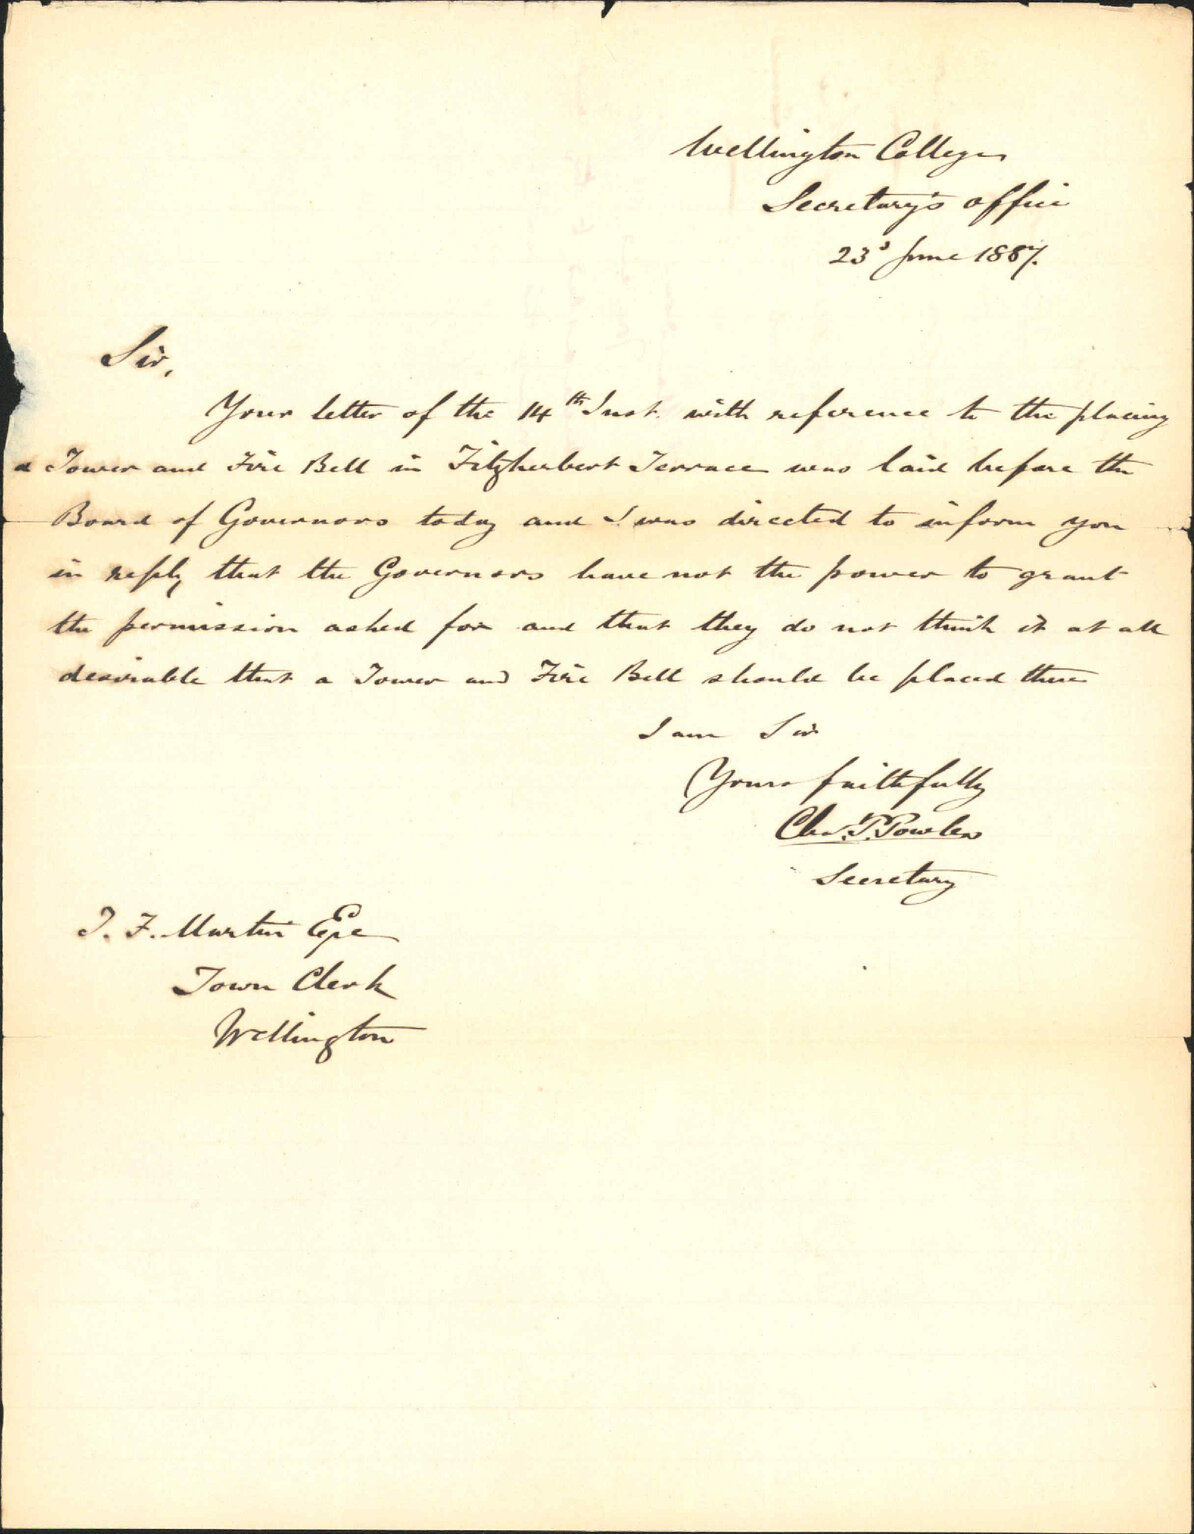 Wellington College
Secretary's office
23d June 1887.
Sir,
Your letter of the 14th Inst. with reference to the placing
a Tower and Fire Bell in Fitzherbert Terrace was laid before the
Board of Governors today and I was directed to inform you
in reply that the Governors have not the power to grant
the permission asked for and that they do not think it at all
desirable that a Tower and Fire Bell should be placed there
I am Sir
Yours faithfully
Chas. P. Powles
Secretary
J. F. Martin Esqre
Town Clerk
Wellington